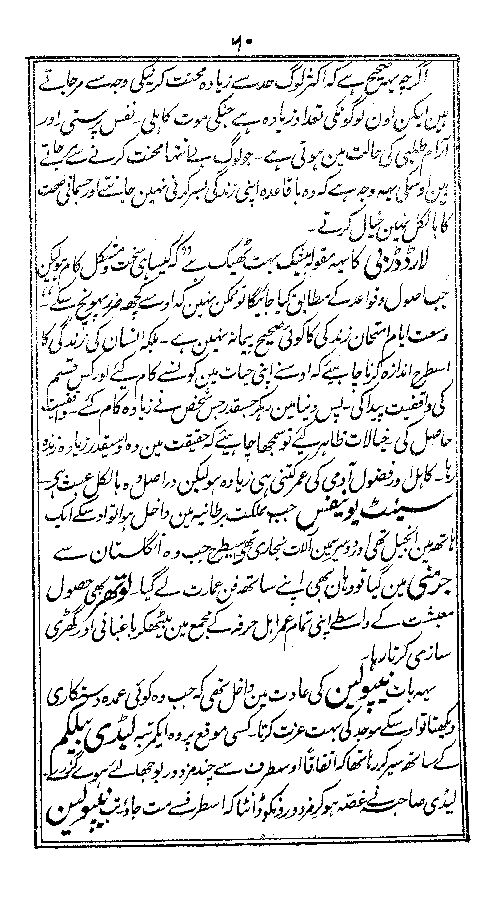 ۶۰
اگرچہ یہہ صحیح ہے کہ اکثر لوگ حد سے زیادہ محنت کرنیکی وجہ سے مرجاتے
ہین لیکن اون لوگونکی تعداد زیادہ ہے جنکی موت کاہلی۔ نفس پرستی اور
آرام طلبی کی حالت مین ہوتی ہے۔ جو لوگ بے انتہا محنت کرنے سے مرجاتے
ہین اوسکی یہہ وجہ ہے کہ وہ باقاعدہ اپنی زندگی بسر کرنی نہین جانتے اور جسمانی صحت
کا بالکل نہین خیال کرتے۔
لارڈ ڈربی کا یہہ مقولہ بیشک بہت ٹھیک ہے "کہ کیسا ہی سخت و مشکل کام ہو لیکن
جب اصول و قواعد کے مطابق کیا جائیگا تو ممکن نہین کہ اوسے کچھہ ضرر پہونچ سکے"
وسعت ایام امتحان زندگی کا کوئی صحیح پیمانہ نہین ہے۔ بلکہ انسان کی زندگی کا
اسطرح اندازہ کرنا چاہئے کہ اوسنے اپنی حیات مین کونسے کام کئے اور کس قسم
کی واقفیت پیدا کی۔ پس دنیا مین جسقدر جس شخص نے زیادہ کام کئے۔ واقفیت
حاصل کی۔ خیالات ظاہر کیے تو سمجھا چاہئیے کہ حقیقت مین وہ اوسیقدر زیادہ زندہ
رہا۔ کاہل اور فضول آدمی کی عمر کتنی ہی زیادہ ہو لیکن دراصل وہ بالکل عبث ہی۔
سینٹ بونیفس جب مملکت برطانیہ مین داخل ہوا تو اوسکے ایک
ہاتھہ مین انجیل تھی اور دوسرے مین آلات نجاری تھے۔ اسیطرح جب وہ انگلستان سے
جرمنی مین گیا تو وہان بھی اپنے ساتھہ فن عمارت لے گیا۔ لوتھر بھی حصول
معیشت کے واسطے اپنی تمام عمر اہل حرفہ کے مجمع مین بیٹھکر باغبانی اور گھڑی
سازی کرتا رہا۔
یہہ بات نیپولین کی عادت مین داخل تھی کہ جب وہ کوئی عمدہ دستکاری
دیکھتا تو اوسکے موجد کی بہت عزت کرتا۔ کسی موقع پر وہ ایک مرتبہ لیڈی بیلکم
کے ساتھہ سیر کر رہا تھا کہ اتفاقاً اوسطرف سے چند مزدور بوجھا لئے ہوئے گذرے۔
لیڈی صاحبہ نے غصہ ہو کر مزدورونکو ڈانٹا کہ اسطرف سے مت جاؤ۔ تب نیپولین